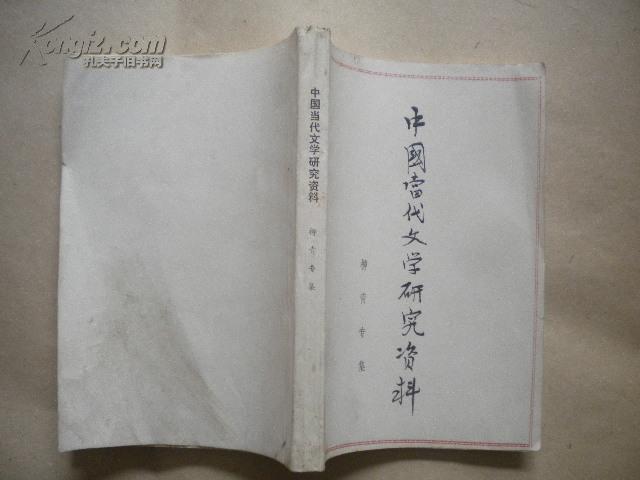 Kongfz.com
孔夫子旧书网
中国当代文学研究资料
柳青专集
中國當代文学研究资料
柳青专集